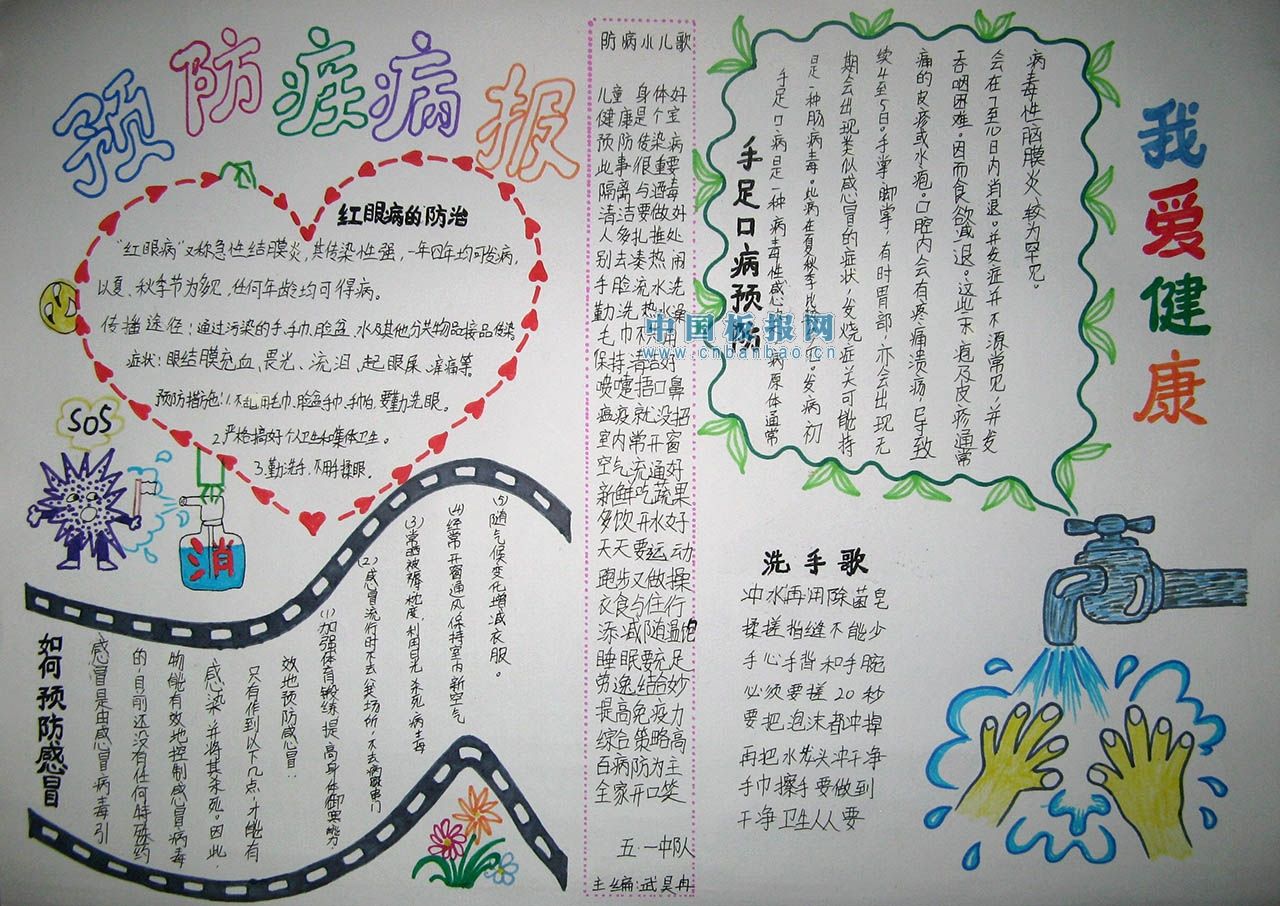 预防疾病报
红眼病的防治
“红眼病”又称急性结膜炎，其传染性强，一年四年均可发病，
以夏、秋季节为多见，任何年龄均可得病。
传播途径：通过污染的手手巾脸盆、水及其他公共物品接品传染
症状：眼结膜充血、畏光、流泪、起眼屎、痒痛等。
预防措施：1.不乱用毛巾、脸盆手巾、手帕，要勤洗眼。
2.严格搞好个人卫生和集体卫生。
3.勤洗手，不用脏揉眼。
SOS
消
如何预防感冒
感冒是由感冒病毒引
的，目前还没有任何特殊药
物能有效地控制感冒病毒
感染，并将其杀死。因此，
只有作到以下几点，才能有
效地预防感冒：
(1)加强体育锻练，提高身体御寒能力
(2)感冒流行时不去公共场所，不去病家串门
(3)常晒被褥枕度，利用日光杀死病毒
(4)经常开窗通风，保持室内新空气
(5)随气候变化增减衣服。
防病小儿歌
儿童身体好
健康是个宝
预防传染病
此事很重要
隔离与酒毒
清洁要做好
人多扎堆处
别去凑热闹
手脸流水洗
勤洗热水澡
毛巾不
保持清洁好
咳嚏捂口鼻
瘟疫就没招
室内常开窗
空气流通好
新鲜吃蔬果
多饮开水好
天天要运动
跑步又做操
衣食与住行
添减随温
睡眠要充足
劳逸结合妙
提高免疫力
综合策略高
百病防为主
全家开口笑
五·一中队
主编：武昊冉
手足口病预防
手足口病是一种病毒性感 病原体通常
是一种肠病毒。此病在夏秋季比 发病初
期会出现类似感冒的症状，发烧症关可能持
续4至5日。手掌、脚掌，有时胃部，亦会出现无
痛的皮疹或水疱。口腔内会有疼痛溃疡，导致
吞咽困难。因而食欲减退。这此水疱及皮疹通常
会在7至10日内消退。并发症并不源常见，并发
病毒性脑膜炎，较为罕见。
我爱健康
洗手歌
冲水再用除菌皂
揉搓指缝不能少
手心手背和手腕
必须要搓20秒
要把泡沫都冲掉
再把水龙头冲干净
手巾擦手要做到
干净卫生人人要
中国板报网
www.cnbanbao.cn